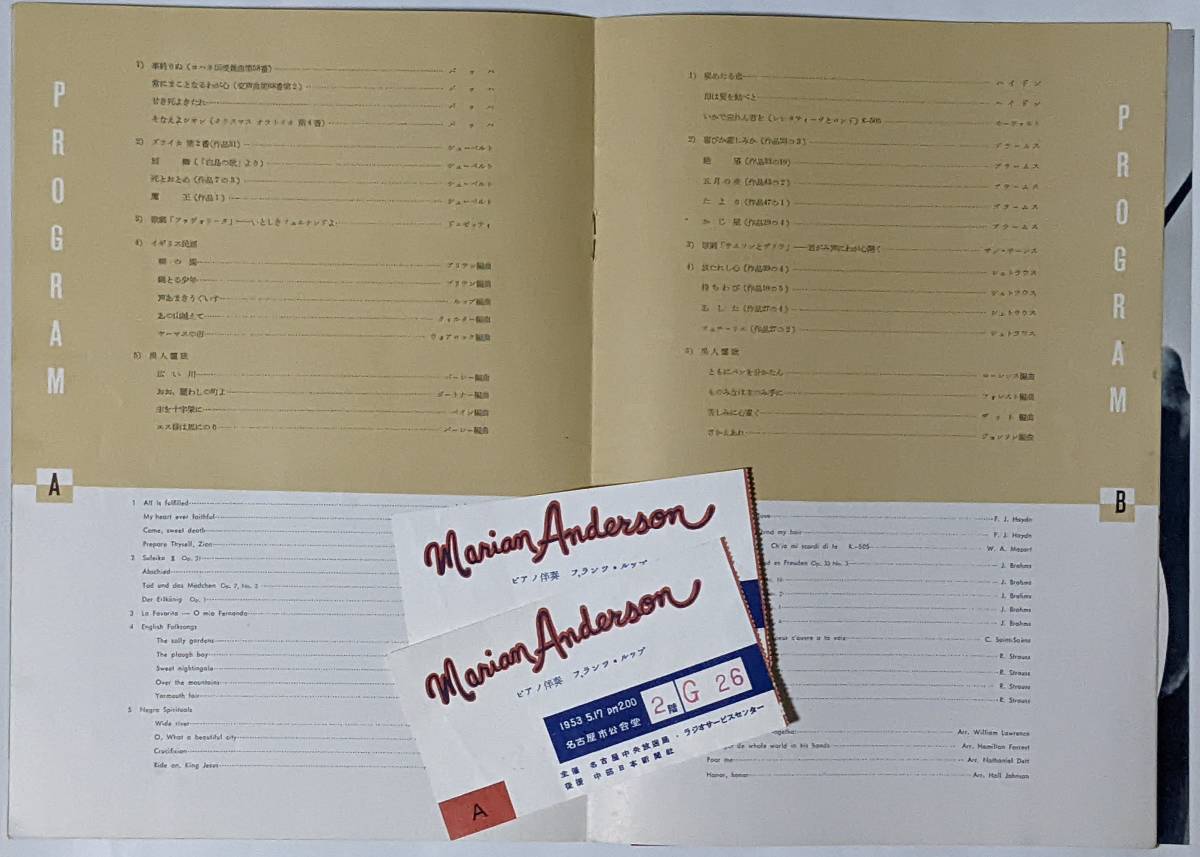 PROGRAM
1) 事終りぬ(ヨハネ伝受難曲第58番) バッハ
常にまことなるわが心(交声曲第68番第2) バッハ
甘き死よきたれ バッハ
そなえよシオン(クリスマス オラトリオ 第4番) バッハ
2) ズライカ 第2番(作品31) シューベルト
(「白鳥の歌」より) シューベルト
死とおとめ(作品7の3) シューベルト
魔王(作品1) シューベルト
3) 歌劇「ファヴォリータ」――いとしきフェルナンドよ ドニゼッティ
4) イギリス民謡
柳の園 ブリテン編曲
鋤とる少年 ブリテン編曲
声あまきうぐいす ルップ編曲
あの山越えて クィルター編曲
ヤーマスの市 ウォアロック編曲
5) 黒人霊歌
広い川 バーレー編曲
おお、麗わしの町よ ボートナー編曲
主を十字架に ペイン編曲
エス様は馬にのり バーレー編曲
A
1 All is fulfilled
My heart ever faithful
Come, sweet death
Prepare Thyself, Zion
2 Suleika II Op. 31
Abschied
Tod und das Mädchen Op. 7, No. 3
Der Erlkönig Op. 1
3 La Favorita — O mio Fernando
4 English Folksongs
The sally gardens
The plough boy
Sweet nightingale
Over the mountains
Yarmouth fair
5 Negro Spirituals
Wide river
O, What a beautiful city
Crucifixion
Ride on, King Jesus
PROGRAM
1) ハイドン
母は髪を結べと ハイドン
いかで忘れん君を(レシタティーヴとロンド)K-505 モーツァルト
2) 喜びか悲しみか(作品33の3) ブラームス
(作品33の10) ブラームス
五月の夜(作品43の2) ブラームス
たより(作品47の1) ブラームス
かじ屋(作品19の4) ブラームス
3) 歌劇「サムソンとデリラ」――君がみ声にわが心開く サン・サーンス
4) 疲れし心(作品39の4) シュトラウス
待ちわび(作品19の5) シュトラウス
あした(作品27の4) シュトラウス
ツェチーリエ(作品27の2) シュトラウス
5) 黒人霊歌
ともにパンを分かたん ローレンス編曲
ものみなは主のみ手に フォレスト編曲
苦しみに心重く デット編曲
さかえあれ ジョンソン編曲
B
F. J. Haydn
my hair F. J. Haydn
Ch'io mi scordi di te K.-505 W. A. Mozart
es Freuden Op. 33 No. 3 J. Brahms
J. Brahms
J. Brahms
J. Brahms
J. Brahms
s'ouvre a ta voix C. Saint-Saëns
R. Strauss
R. Strauss
R. Strauss
R. Strauss
Arr. William Lawrence
de whole world in his hands Arr. Hamilton Forrest
Poor me Arr. Nathaniel Dett
Honor, honor Arr. Hall Johnson
Marian Anderson
ピアノ伴奏 フランツ・ルップ
Marian Anderson
ピアノ伴奏 フランツ・ルップ
1953 5.17 pm2.00
名古屋市公会堂
2階 G 26
主催 名古屋中央放送局・ラジオサービスセンター
後援 中部日本新聞社
A